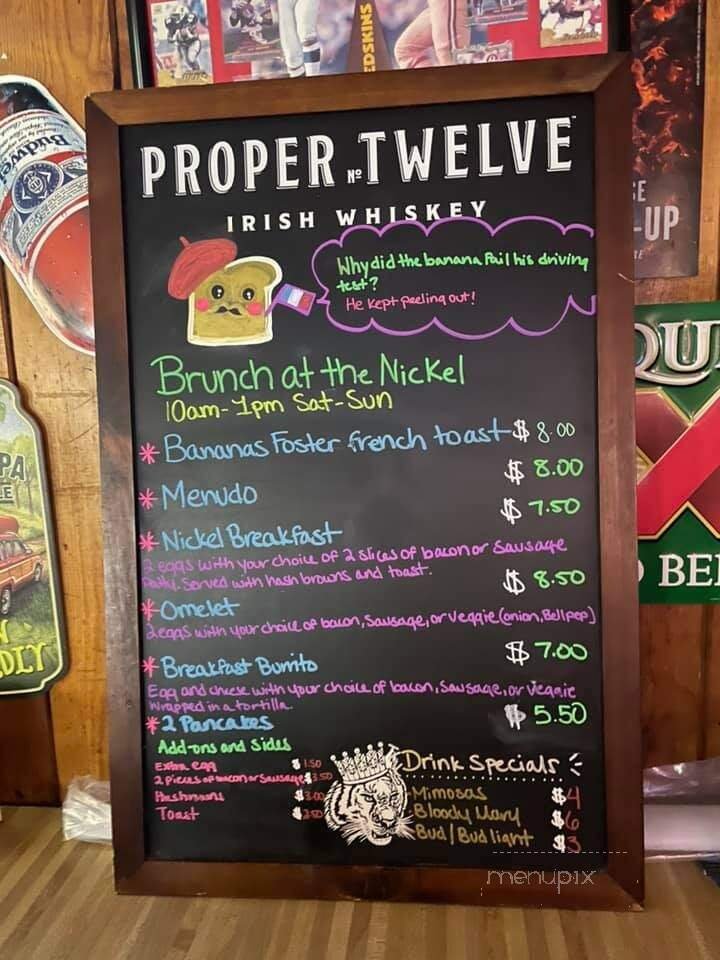 EDSKINS
Budweiser
PROPER No. TWELVE
IRISH WHISKEY
Why did the banana fail his driving
test?
He kept peeling out!
Brunch at the Nickel
10am-1pm Sat-Sun
* Bananas Foster french toast $ 8.00
* Menudo $ 8.00
* Nickel Breakfast $ 7.50
2 eggs with your choice of 2 slices of bacon or sausage
Patty. Served with hash browns and toast.
* Omelet $ 8.50
2 eggs with your choice of bacon, sausage, or veggie (onion, Bell pep)
* Breakfast Burrito $ 7.00
Egg and cheese with your choice of bacon, sausage, or veggie
wrapped in a tortilla
* 2 Pancakes $ 5.50
Add-ons and Sides
Extra egg $ 1.50
2 pieces of bacon or sausage $ 3.50
Hashbrowns $ 3.00
Toast $ 2.50
Drink Specials
Mimosas $4
Bloody Mary $6
Bud / Bud light $3
menupix
-UP
QU
BE
PA
LE
DLY